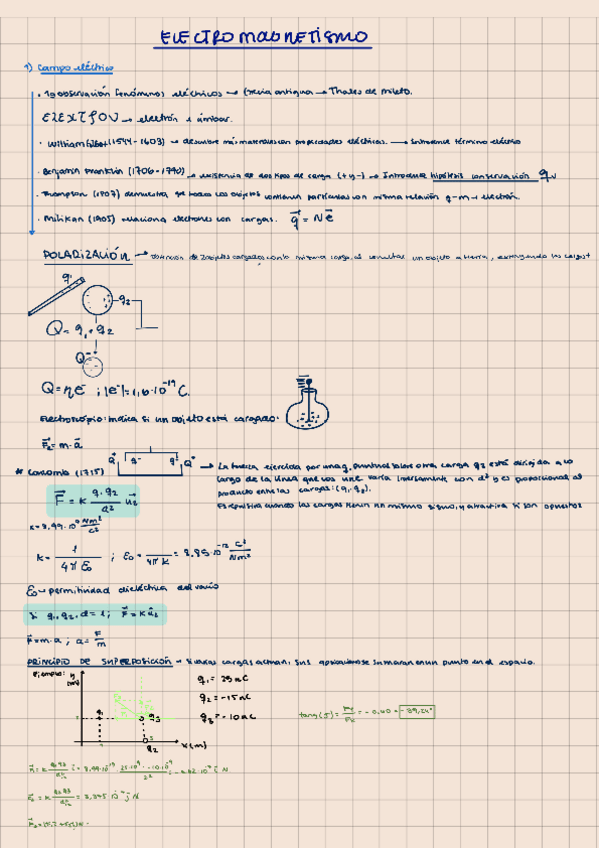 ELECTROMAGNETISMO
1) Campo eléctrico
• 1ª observación fenómenos eléctricos → Grecia antigua → Thales de Mileto.
→ electrón = ámbar.
• William Gilbert (1544-1603) → descubre más materiales con propiedades eléctricas. → Introduce término eléctrico
• Benjamin Franklin (1706-1790) → existencia de dos tipos de carga (+ y -) → Introduce hipótesis conservación q
• Thompson (1907) demuestra que todos los objetos contienen partículas con misma relación q-m → electrón.
• Milikan (1905) relaciona electrones con cargas. q = Ne
POLARIZACIÓN → cargados con la misma carga, al conectar un objeto a tierra,
q₁
q₂
Q = q₁ + q₂
Q
Q = ne⁻ ; |e⁻| = 1,6·10⁻¹⁹ C.
Electroscopio: indica si un objeto está cargado.
= m·a
Q⁺ q⁻ q⁺ Q⁻
* Coulomb (1715) → La fuerza ejercida por una q puntual sobre otra carga q₂ está dirigida a lo
largo de la línea que las une. Varía inversamente con d² y es proporcional al
producto entre las cargas: (q₁·q₂).
Es repulsiva cuando las cargas tienen un mismo signo, y atractiva si son opuestos
F = K q₁·q₂ / d² u
K = 8,99·10⁹ Nm²/C²
K = 1 / 4πε₀ ; ε₀ = 1 / 4πK = 8,85·10⁻¹² C²/Nm²
ε₀ → permitividad dieléctrica del vacío
Si q₁, q₂, d = 1; F = K u
F = m·a ; a = F/m
PRINCIPIO DE SUPERPOSICIÓN → Si varias cargas actúan, sus se sumaran en un punto en el espacio.
Ejemplo:
y (m)
q₁
q₃
q₂
x (m)
q₁ = 25 nC
q₂ = -15 nC
q₃ = -10 nC